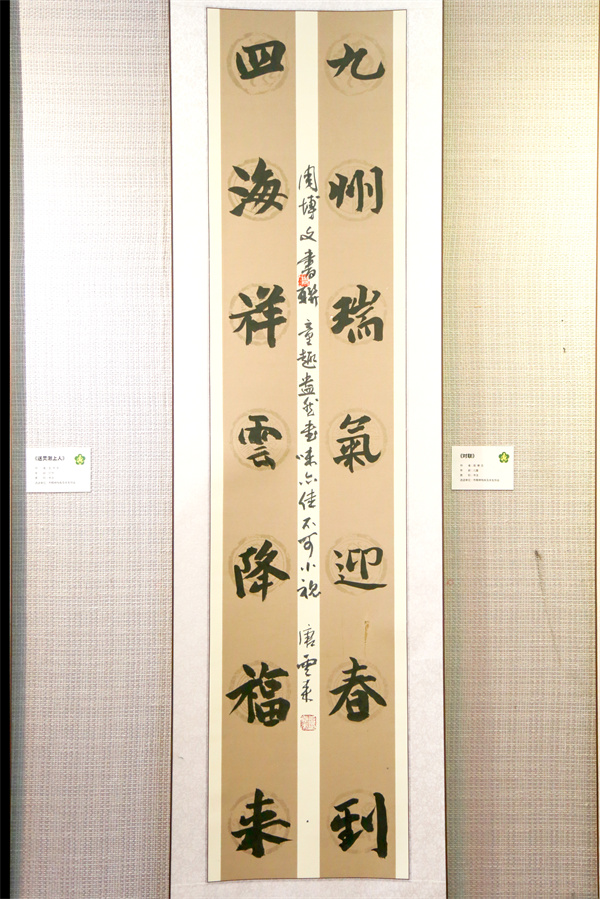 九州瑞氣迎春到
周博文書联 童趣盎然書味亦佳不可小視 唐雲来
四海祥雲降福来
《送灵澈上人》
《对联》